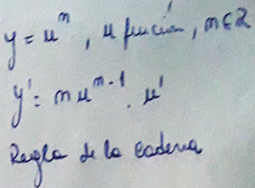 y = u^n, u función, n ∈ Z
y' = n u^{n-1} . u'
Regla de la cadena